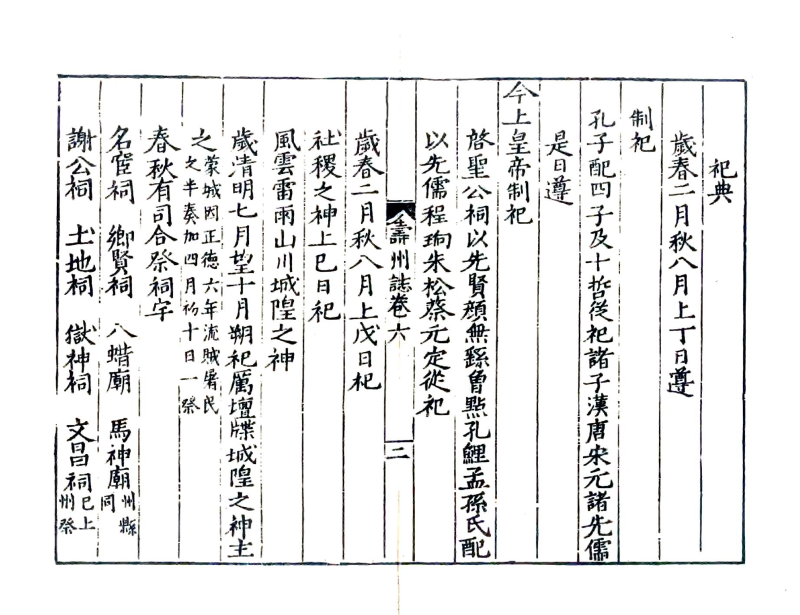 祀典
歲春二月秋八月上丁日遵
制祀
孔子配四子及十哲從祀諸子漢唐宋元諸先儒
是日遵
今上皇帝制祀
啓聖公祠以先賢顏無繇曾點孔鯉孟孫氏配
以先儒程珦朱松蔡元定從祀
壽州誌卷六
二
歲春二月秋八月上戊日祀
社稷之神上巳日祀
風雲雷雨山川城隍之神
歲清明七月望十月朔祀厲壇牒城隍之神主
之蒙城因正德六年流賊屠民
之半奏加四月初十日一祭
春秋有司合祭祠宇
名宦祠 鄉賢祠 八蜡廟 馬神廟州縣同
謝公祠 土地祠 獄神祠 文昌祠巳上州祭